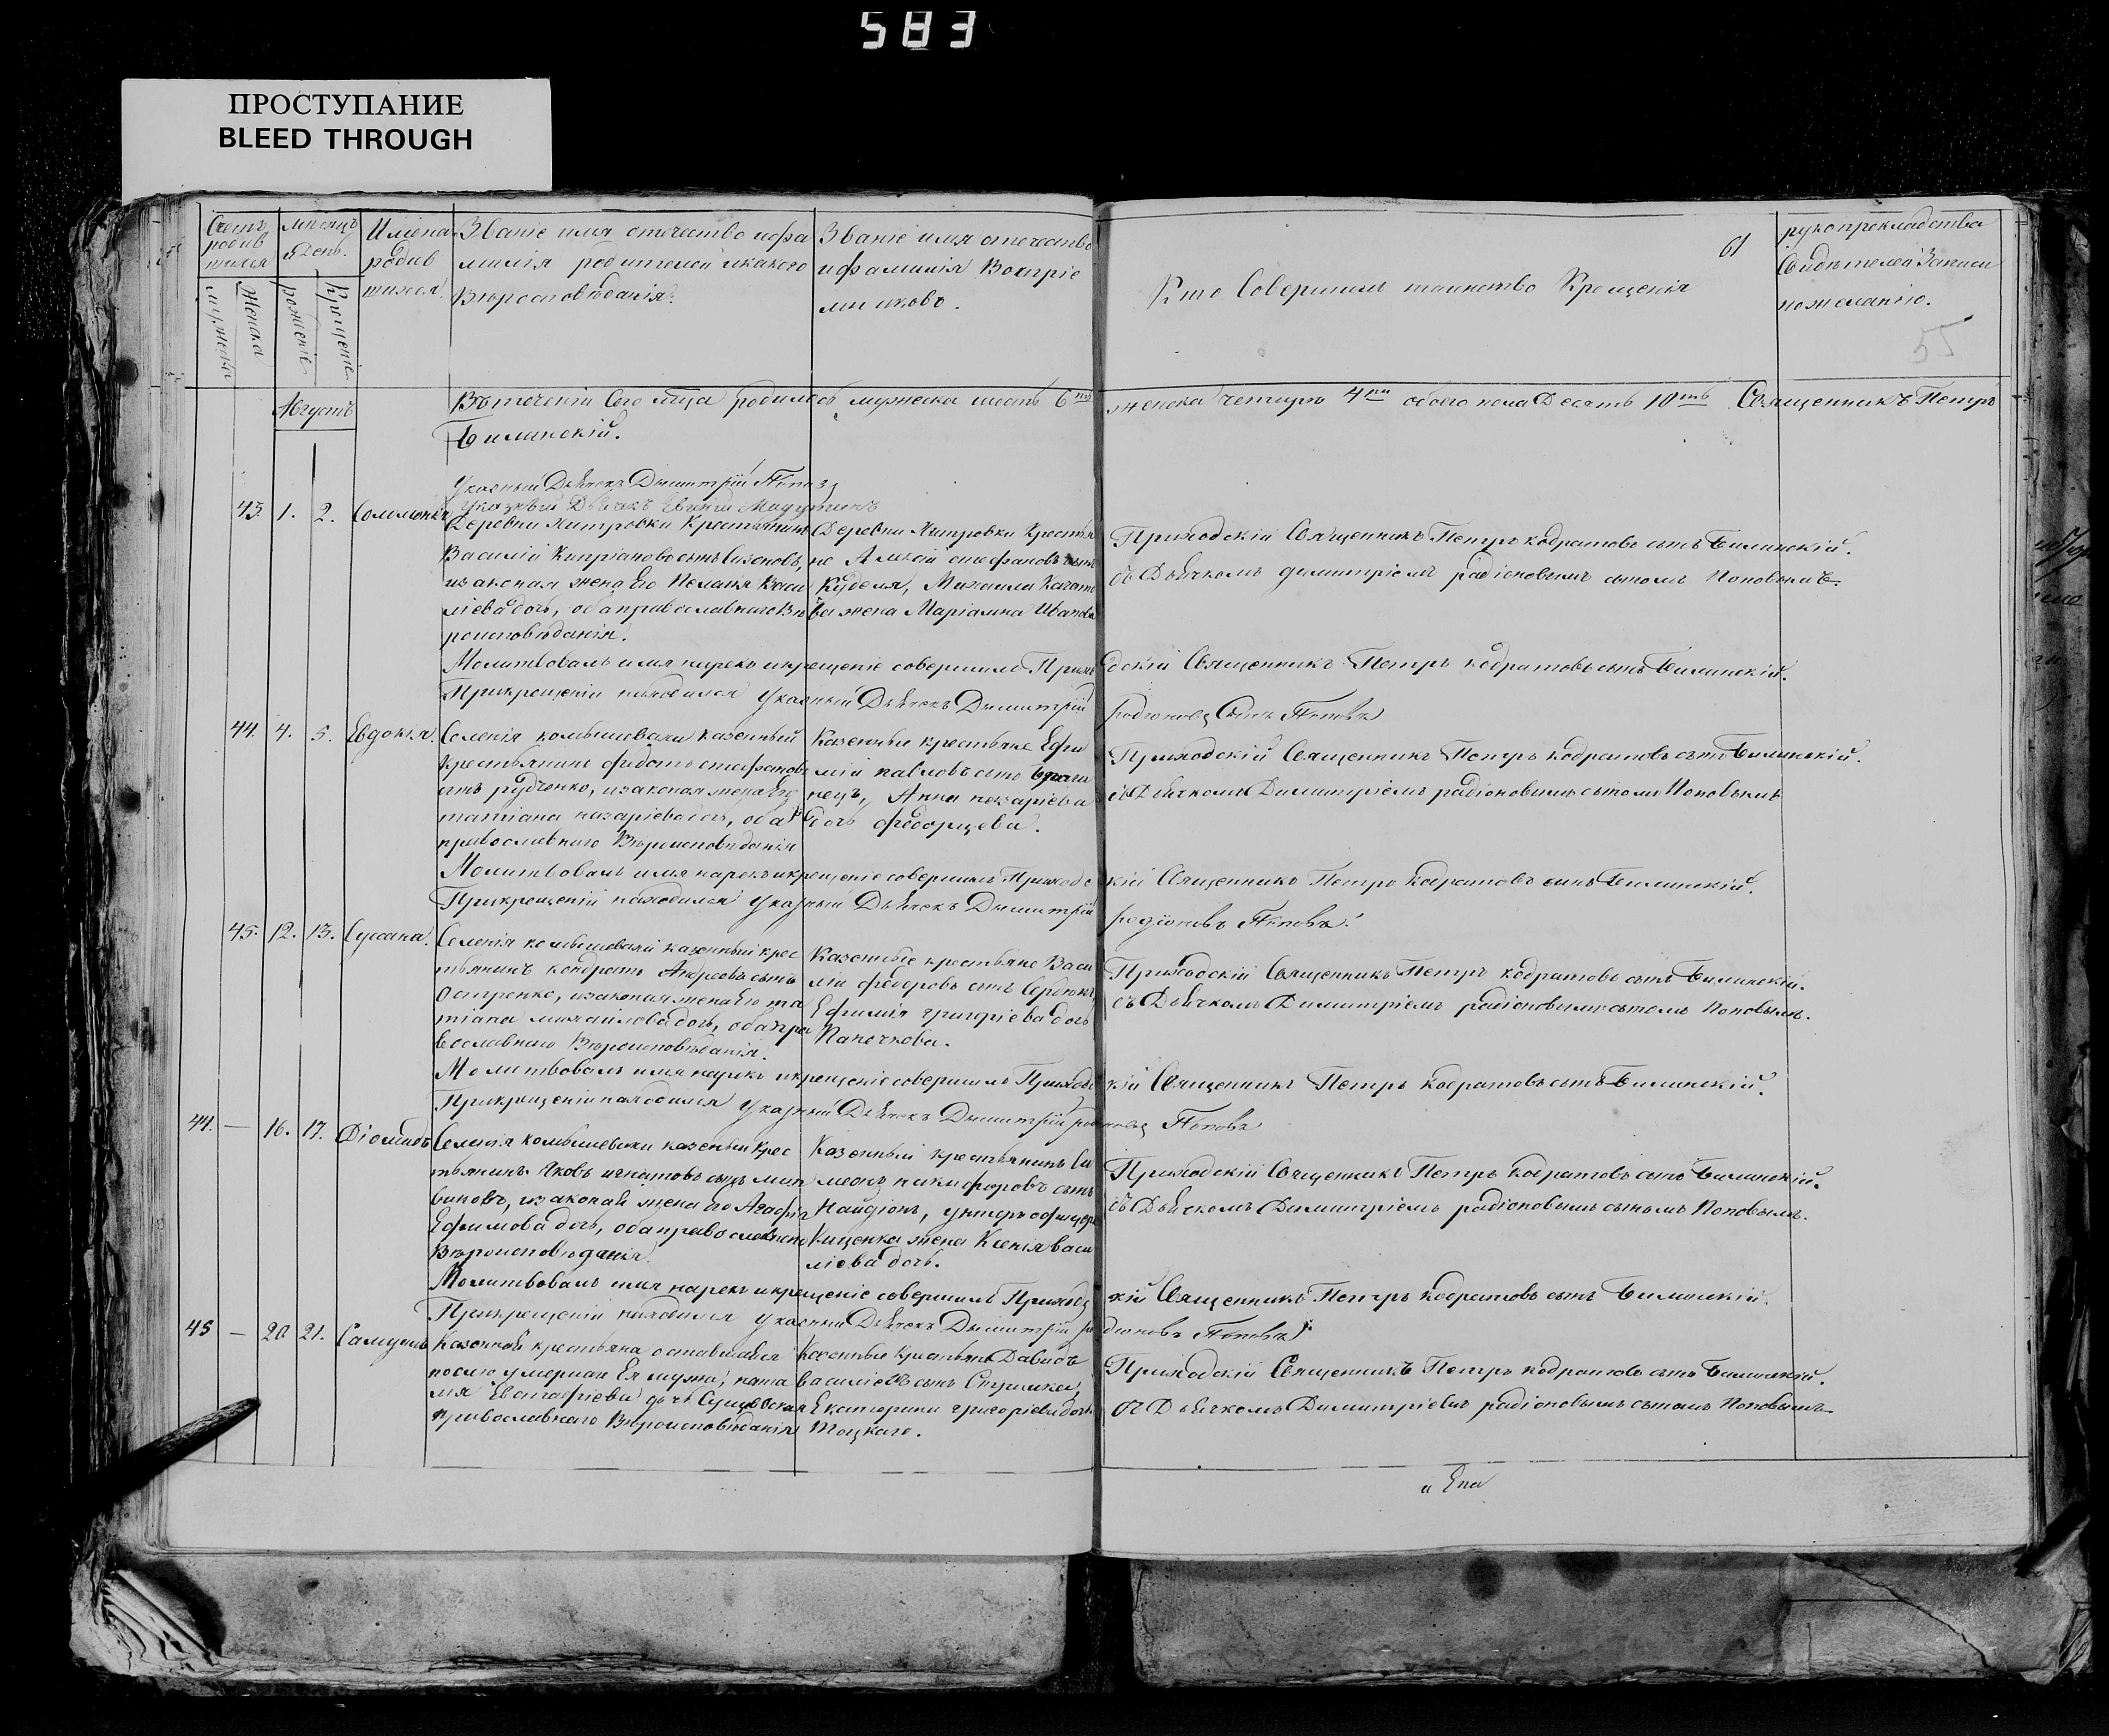 583
ПРОСТУПАНИЕ
BLEED THROUGH
Счетъ родив шихся
мѣсяцъ и День.
Имена родив шихся.
Званіе имя отечество и фа
милія родителей и какого
Вѣроисповѣданія.
Званіе имя отечество
и фамилія Воспріе
мниковъ.
61
Кто Совершилъ таинство Крещенія
рукоприкладства
Свидѣтелей Записи
по желанію.
55
мужеска
Женска
рожденіе
Крещеніе
Августъ
Въ теченіи Сего мѣсяца родилось мужеска шесть 6ть женска четыре 4ри обоего пола Десять 10ть Священникъ Петръ
Билинскій.
Указный Дьячекъ Димитрій Поповъ
Указный Дьячекъ Евфимій
43. 1. 2. Соломонія
Деревни Петровки Крестьянинъ
Василій Кипріановъ сынъ Сизоновъ,
и законная жена Его Пелагія Васи
ліева дочь, оба православнаго Вѣ
роисповѣданія.
Деревни Петровки Крестья
не Алексій стефановъ сынъ
Куделя, Михаила
ва жена Маріамна Иванова
Приходскій Священникъ Петръ кодратовъ сынъ Билинскій.
съ Дьячкомъ димитріемъ радіоновымъ сыномъ Поповымъ.
Молитвовалъ имя нарекъ и крещеніе совершилъ Приходскій Священникъ Петръ кодратовъ сынъ Билинскій.
При крещеніи находился указный Дьячекъ Димитрій Родіоновъ Сынъ Поповъ
44. 4. 5. Евдокія.
Селенія комышевахи казенный
крестьянинъ федотъ стефановъ
сынъ рудченко, и законная жена Его
татіана назаріева дочь, оба
православнаго Вѣроисповѣданія
Казенные крестьяне Ефи
мій павловъ сынъ
нецъ, Анна назаріева
дочь федорцева.
Приходскій Священникъ Петръ кодратовъ сынъ Билинскій.
съ Дьячкомъ Димитріемъ радіоновымъ сыномъ Поповымъ
Молитвовалъ имя нарекъ и крещеніе совершилъ Приходскій Священникъ Петръ кодратовъ сынъ Билинскій.
При крещеніи находился указный Дьячекъ Димитрій родіоновъ Поповъ.
45. 12. 13. Сусана.
Селенія комышевахи казенный крес
тьянинъ кондратъ Андреевъ сынъ
Остренко, и законная жена Его та
тіана михайлова дочь, оба пра
вославнаго Вѣроисповѣданія.
Казенные крестьяне Васи
лій федоровъ сынъ Сердюкъ,
Ефимія григоріева дочь
Папечкова.
Приходскій Священникъ Петръ кодратовъ сынъ Билинскій.
съ Дьячкомъ Димитріемъ радіоновымъ сыномъ Поповымъ.
Молитвовалъ имя нарекъ и крещеніе совершилъ Приходскій Священникъ Петръ кодратовъ сынъ Билинскій.
При крещеніи находился указный Дьячекъ Димитрій родіоновъ Поповъ
44. — 16. 17. Діомидъ
Селенія комышевахи казенный крес
тьянинъ Яковъ игнатовъ сынъ лит
виновъ, и законная жена его Агафія
Ефимова дочь, оба православнаго
Вѣроисповѣданія.
Казенный крестьянинъ Си
меонъ никифоровъ сынъ
Найдіонъ, унтеръ офицера
Кищенка жена Ксенія васи
ліева дочь.
Приходскій Священникъ Петръ кодратовъ сынъ Билинскій.
съ Дьячкомъ Димитріемъ радіоновымъ сыномъ Поповымъ.
Молитвовалъ имя нарекъ и крещеніе совершилъ Приходскій Священникъ Петръ кодратовъ сынъ Билинскій.
При крещеніи находился указный Дьячекъ Димитрій родіоновъ Поповъ
45 — 20 21. Самуилъ
Казенной крестьянка оставшаяся
послѣ умершаго Ея мужа, ната
лія Евстафіева дочь
православнаго Вѣроисповѣданія
Казенные крестьяне Давидъ
василіевъ сынъ
Екатерина григоріева дочь
Тоцкаго.
Приходскій Священникъ Петръ кодратовъ сынъ Билинскій.
съ Дьячкомъ Димитріемъ радіоновымъ сыномъ Поповымъ